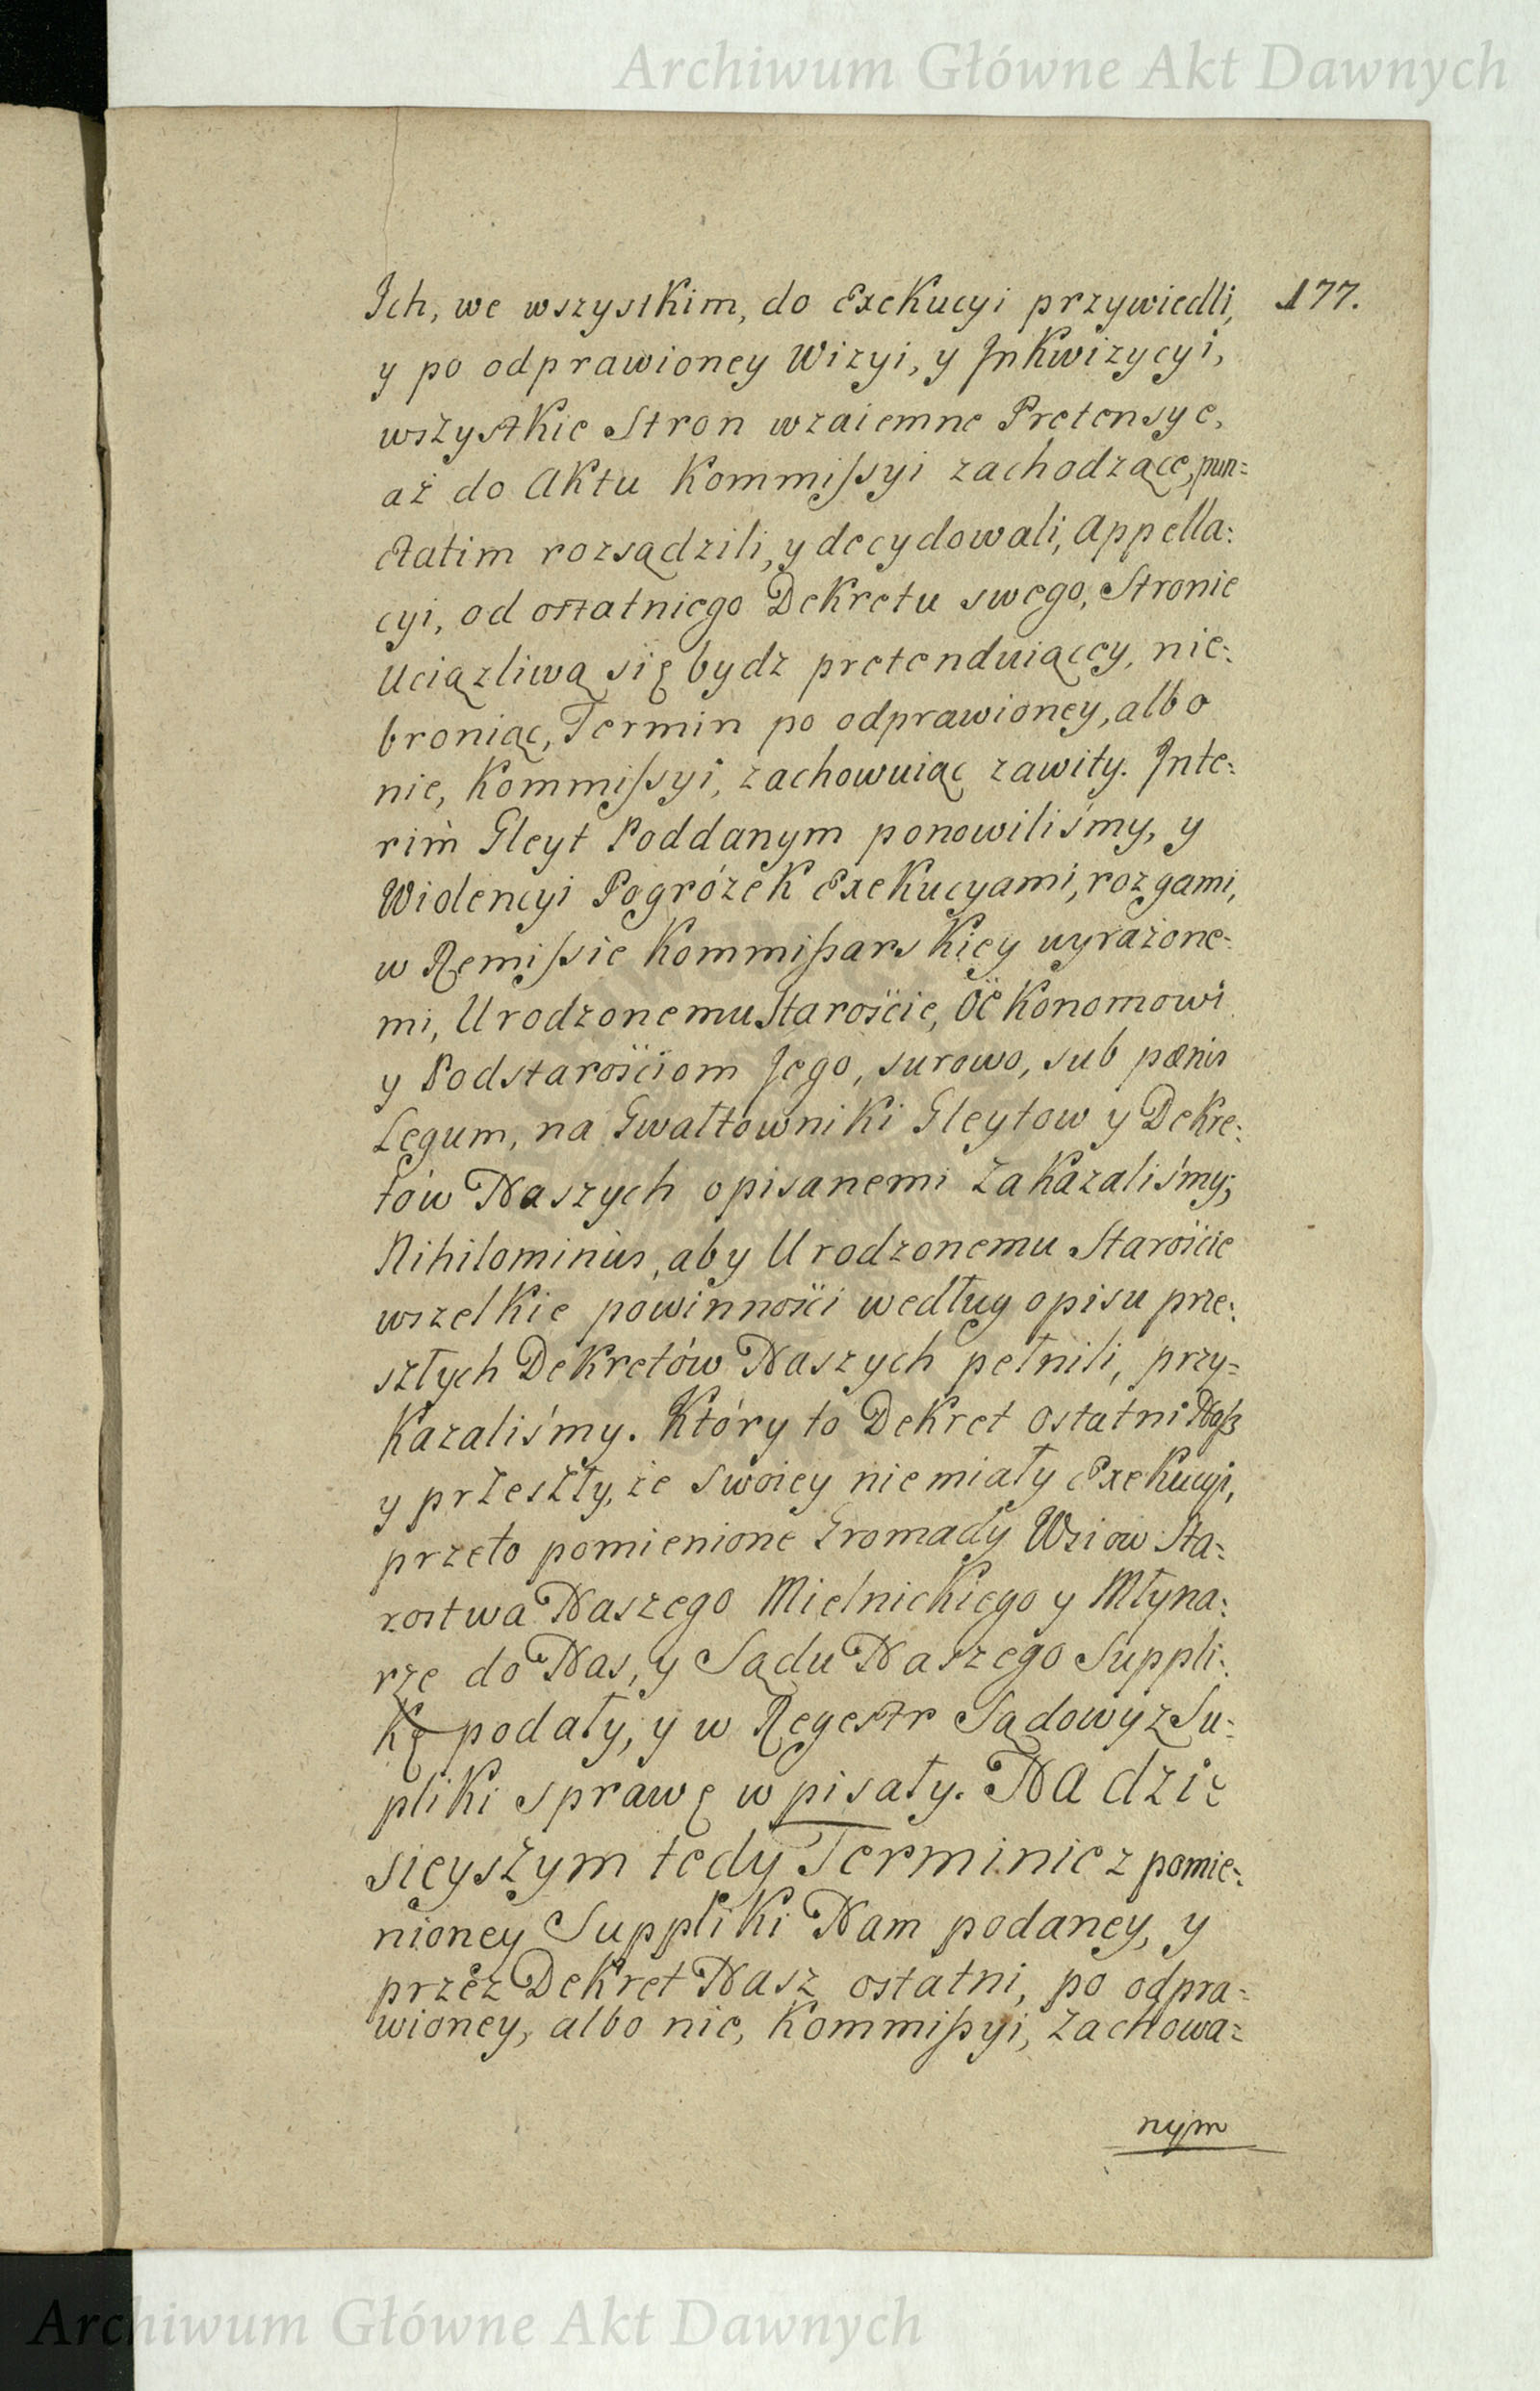 Archiwum Główne Akt Dawnych
177.
Ich, we wszystkim, do Exekucyi przywiedli,
y po odprawioney Wizyi, y Inkwizycyi,
wszystkie Stron wzaiemne Pretensye,
aż do Aktu Kommissyi zachodzące, pun=
ctatim rozsądzili, y decydowali, Appella:
cyi, od ostatniego Dekretu swego, Stronie
Uciązliwą się bydz pretenduiącey, nie:
broniąc, Termin po odprawioney, albo
nie, Kommissyi, zachowuiąc zawity. Inte:
rim Gleyt Poddanym ponowiliśmy, y
Wiolencyi Pogrózek Exekucyami, rozgami,
w Remissie Kommissarskiey wyrażone:
mi, Urodzonemu Staroście, Oekonomowi
y Podstarościom Jego, surowo, sub pœnis
Legum, na Gwałtowniki Gleytow y Dekre:
tów Naszych opisanemi zakazaliśmy;
Nihilominus, aby Urodzonemu Staroście
wszelkie powinności według opisu prze:
szłych Dekretów Naszych pełnili, przy=
kazaliśmy. Który to Dekret Ostatni Nasz
y przeszły, że swoiey niemiały Exekucyi,
przeto pomienione Gromady Wsiow Sta=
rostwa Naszego Mielnickiego y Młyna:
rze do Nas, y Sądu Naszego Suppli:
kę podały, y w Regestr Sądowy z Su=
pliki sprawę wpisały. NA dzi:
sieyszym tedy Terminie z pomie:
nioney Suppliki Nam podaney, y
przez Dekret Nasz ostatni, po odpra=
wioney, albo nie, Kommissyi, zachowa=
nym
Archiwum Główne Akt Dawnych